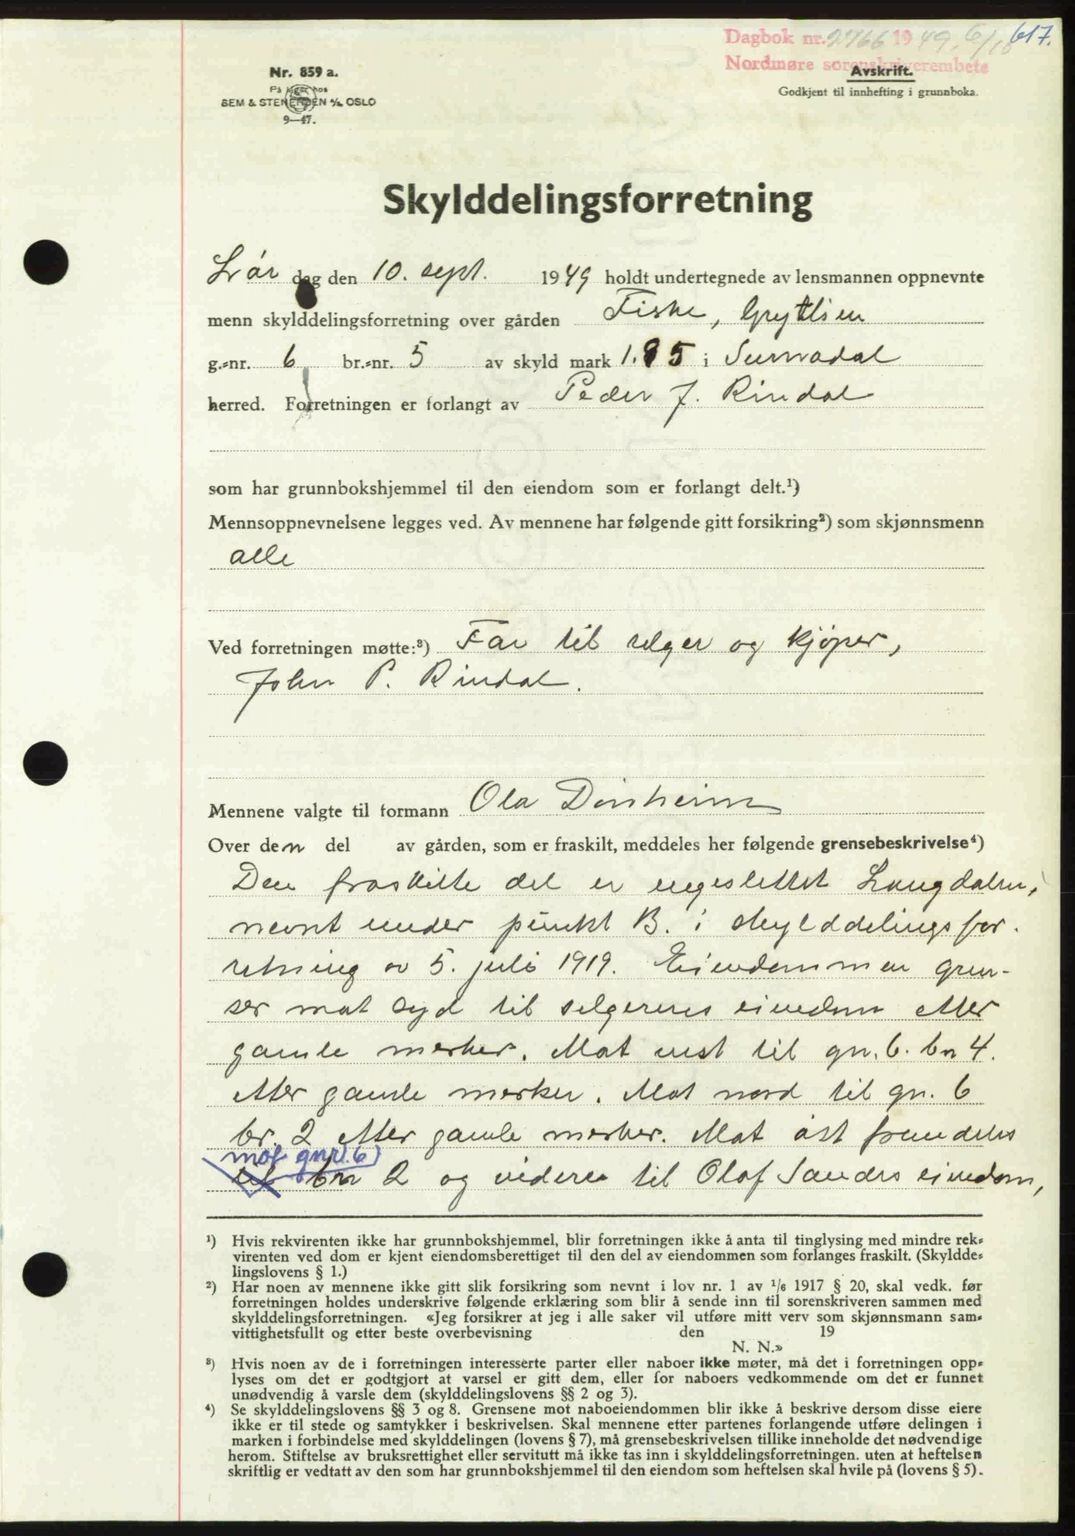 Dagbok nr. 2766 1949. 6/10 617.
Nordmøre sorenskriverembete
Avskrift.
Godkjent til innhefting i grunnboka.
Nr. 859 a.
På lager hos
SEM & STENERSEN A/S OSLO
9—47.
Skylddelingsforretning
Lør dag den 10. sept. 1949 holdt undertegnede av lensmannen oppnevnte
menn skylddelingsforretning over gården Fiske, Gryttlien
g.-nr. 6 br.-nr. 5 av skyld mark 1.85 i Surnadal
herred. Forretningen er forlangt av Peder J. Rindal
som har grunnbokshjemmel til den eiendom som er forlangt delt.¹)
Mennsoppnevnelsene legges ved. Av mennene har følgende gitt forsikring²) som skjønnsmenn
alle
Ved forretningen møtte:³) Far til selger og kjøper,
John P. Rindal.
Mennene valgte til formann Ola Dønheim
Over den del av gården, som er fraskilt, meddeles her følgende grensebeskrivelse⁴)
Den fraskilte del er engeslettet Langdalen,
nevnt under punkt B. i skylddelingsfor-
retning av 5. juli 1919. Eiendommen gren-
ser mot syd til selgerens eiendom etter
gamle merker. Mot vest til gn. 6. bn 4.
etter gamle merker. Mot nord til gn. 6
br. 2 etter gamle merker. Mot øst fremdeles
mot gnr. 6)
til bn 2 og videre til Olaf Sandes eiendom,
¹) Hvis rekvirenten ikke har grunnbokshjemmel, blir forretningen ikke å anta til tinglysing med mindre rek-
virenten ved dom er kjent eiendomsberettiget til den del av eiendommen som forlanges fraskilt. (Skyldde-
lingslovens § 1.)
²) Har noen av mennene ikke gitt slik forsikring som nevnt i lov nr. 1 av 1/6 1917 § 20, skal vedk. før
forretningen holdes underskrive følgende erklæring som blir å sende inn til sorenskriveren sammen med
skylddelingsforretningen. «Jeg forsikrer at jeg i alle saker vil utføre mitt verv som skjønnsmann sam-
vittighetsfullt og etter beste overbevisning den 19
N. N.»
³) Hvis noen av de i forretningen interesserte parter eller naboer ikke møter, må det i forretningen opp-
lyses om det er godtgjort at varsel er gitt dem, eller for naboers vedkommende om det er funnet
unødvendig å varsle dem (skylddelingslovens §§ 2 og 3).
⁴) Se skylddelingslovens §§ 3 og 8. Grensene mot naboeiendommen blir ikke å beskrive dersom disse eiere
ikke er til stede og samtykker i beskrivelsen. Skal mennene etter partenes forlangende utføre delingen i
marken i forbindelse med skylddelingen (lovens § 7), må grensebeskrivelsen tillike inneholde det nødvendige
herom. Stiftelse av bruksrettighet eller servitutt må ikke tas inn i skylddelingsforretningen, uten at heftelsen
skriftlig er vedtatt av den som har grunnbokshjemmel til den eiendom som heftelsen skal hvile på (lovens § 5).